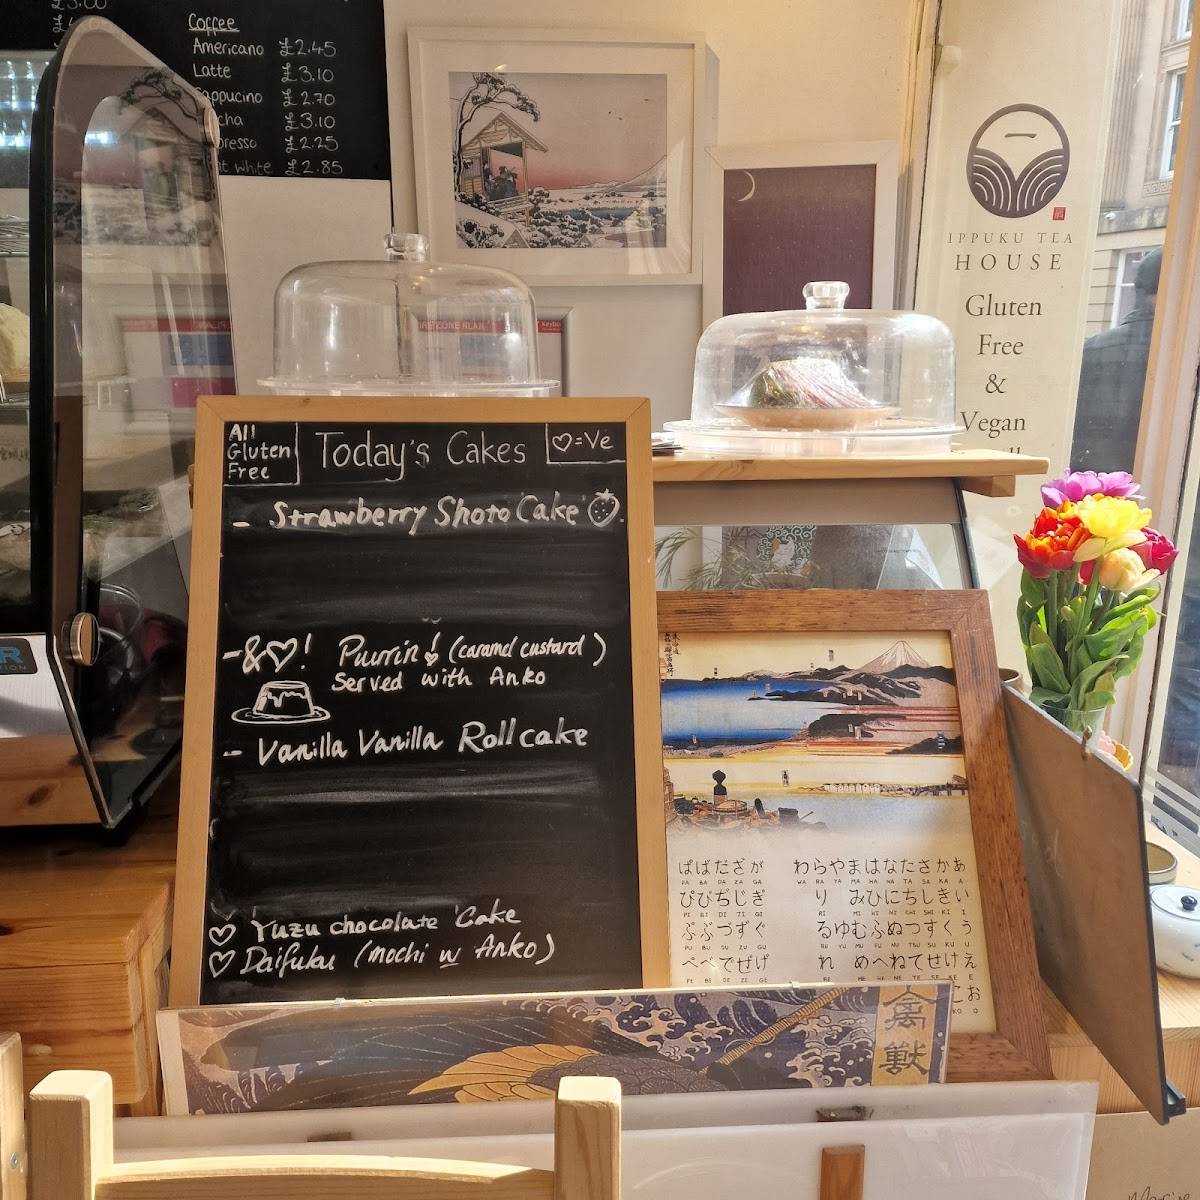 Coffee
Americano £2.45
Latte £3.10
£2.70
£3.10
£2.25
white £2.85
IPPUKU TEA
HOUSE
Gluten
Free
&
Vegan
All
Gluten
Free
Today's Cakes
♡=Ve
- Strawberry Shoto Cake
-&♡! Purrin! (caramel custard)
Served with Anko
- Vanilla Vanilla Roll cake
♡ Yuzu chocolate Cake
♡ Daifuku (mochi w Anko)
ぱばだざが わらやまはなたさかあ
PA BA DA ZA GA WA RA YA MA HA NA TA SA KA A
ぴびぢじぎ り みひにちしきい
PI BI DI JI GI RI MI HI NI CHI SHI KI I
ぷぶづずぐ るゆむふぬつすくう
PU BU DU ZU GU RU YU MU FU NU TSU SU KU U
ぺべでぜげ れ めへねてせけえ
PE BE DE ZE GE RE ME HE NE TE SE KE E
こお
KO O
禽
獣